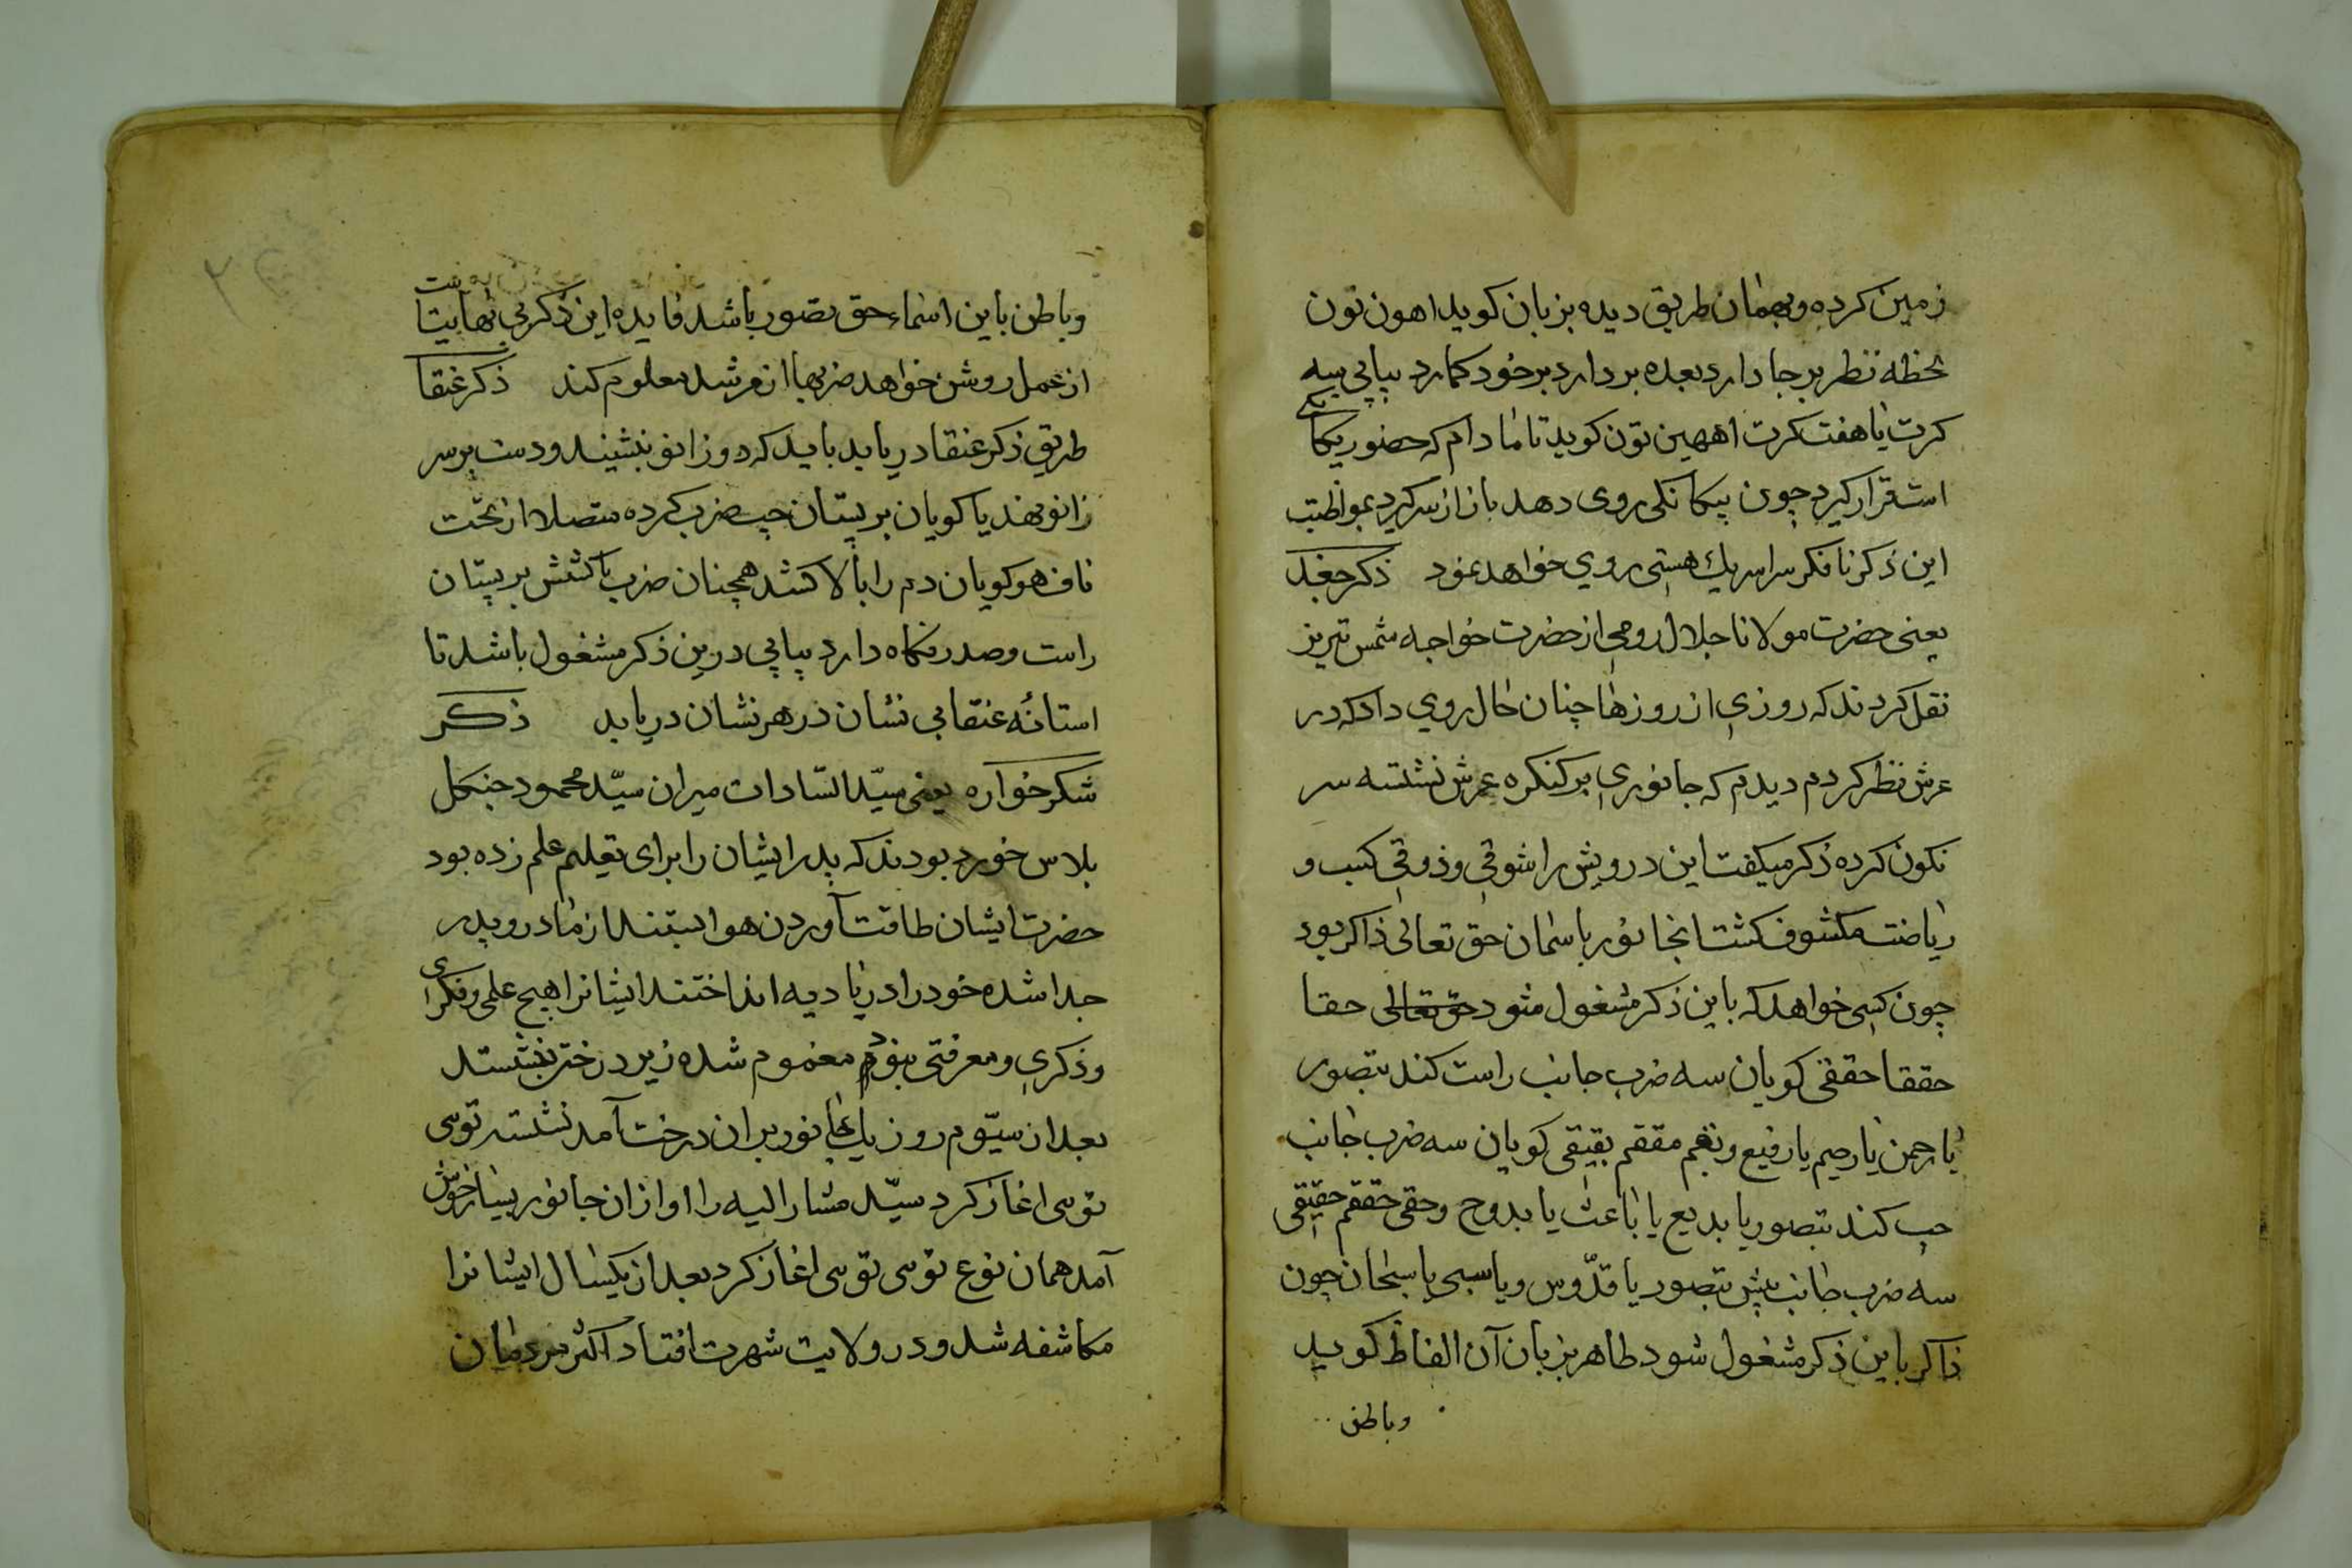 زمین کرده و بهمان طریق دیده بزبان کوید اهون تون
لحظه نظر بر جا دارد بعده بر دارد بر خود کمارد پیاپی سه
کرت یا هفت کرت اههین تون کوید تا مادام که حضور یکا
نکی
استقرار کیرد چون پیکانکی روی دهد باز از سر کیرد بمواظبت
این ذکر نا فکر سراسر یك هستی روي خواهد نمود ذکر جغد
یعنی حضرت مولانا جلال رومی از حضرت خواجه شمس تبریز
نقل کردند که روزي از روزها چنان حال روي داد که در
عرش نظر کردم دیدم که جانوري بر کنکره عرش نشسته سر
نکون کرده ذکر میکفت این درویش را شوقی و ذوقی کسب و
ریاضت مکشوف کشت انجانور باسمان حق تعالی ذاکر بود
چون کسی خواهد که باین ذکر مشغول شود حق تعالی حقا
حققا حققی کویان سه ضرب جانب راست کند بتصور
یا رحمن یا رحیم یا رفیع و مققم بقیقی کویان سه ضرب جانب
چپ کند بتصور یا بدیع یا باعث یا بدوح و حقی حققم حقیقی
سه ضرب جانب پیش بتصور یا قدّوس و یا سبحی یا سبحان چون
ذاکر باین ذکر مشغول شود ظاهر بزبان آن الفاظ کوید
و باطن
و باطن باین اسماء حق بتصور باشد فایده این ذکر بی نهایتا
ست
از عمل روشن خواهد ضربها از مرشد معلوم کند ذکر عنقا
طریق ذکر عنقا دریابد باید که دو زانو بنشیند و دست بر سر
زانو نهد یا کویان بر پستان چپ ضرب کرده متصلا از تحت
ناف هو کویان دم را بالا کشد همچنان ضرب با کشش بر پستان
راست و صدر نکاه دارد پیاپی درین ذکر مشغول باشد تا
استانهٔ عنقا بی نشان در هر نشان دریابد ذکر
شکر خواره یعنی سیّد السّادات میران سیّد محمود جنکل
بلاس خورد بودند که پدر ایشان را برای تعلیم علم زده بود
حضرت ایشان طاقت آوردن هوا از مادر و پدر
جدا شده خود را در بادیه انداختند ایشانرا هیچ علمی و فکری
و ذکري و معرفتی نبود مغموم شده زیر درختی بنشستند
بعد از سیّوم روز یك جانور بران درخت آمد نشسته توسی
توسی اغاز کرد سیّد مشار الیه را اواز ان جانور بسیار خوش
آمد همان نوع توسی توسی اغاز کرد بعد از یکسال ایشانرا
مکاشفه شد و در ولایت شهرت افتاد اکثر مردمان